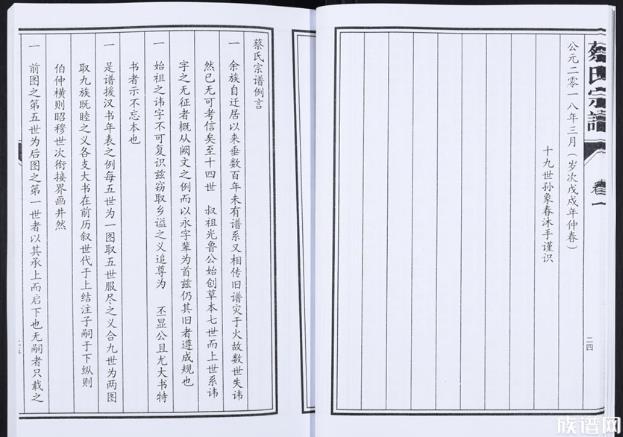 蔡氏宗譜
卷一
公元二零一八年三月（岁次戊戌年仲春）
十九世孙象春沐手谨识
二四
蔡氏宗谱例言
一 余族自迁居以来垂数百年未有谱系又相传旧谱灾于火故数世失讳
然已无可考信矣至十四世 叔祖光鲁公始创草本七世而上世系讳
字之无征者概从阙文之例而以永字辈为首兹仍其旧者遵成规也
一 始祖之讳字不可复识兹窃取乡谥之义追尊为 丕显公且尤大书特
书者示不忘本也
一 是谱援汉书年表之例每五世为一图取五世服尽之义合九世为两图
取九族既睦之义各支大书在前历叙世代于上结注子嗣于下纵则
伯仲横则昭穆世次衔接界画井然
一 前图之第五世为后图之第一世者以其承上而启下也无嗣者只载之
族谱网